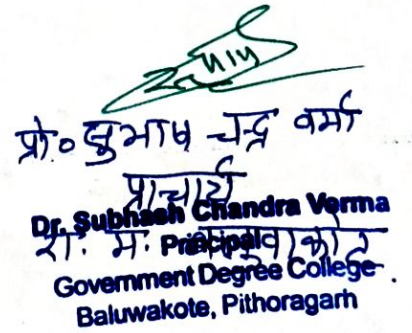 प्रो० सुभाष चन्द्र वर्मा
प्राचार्य
Dr. Subhash Chandra Verma
रा. म.
Principal
Government Degree College
Baluwakote, Pithoragarh